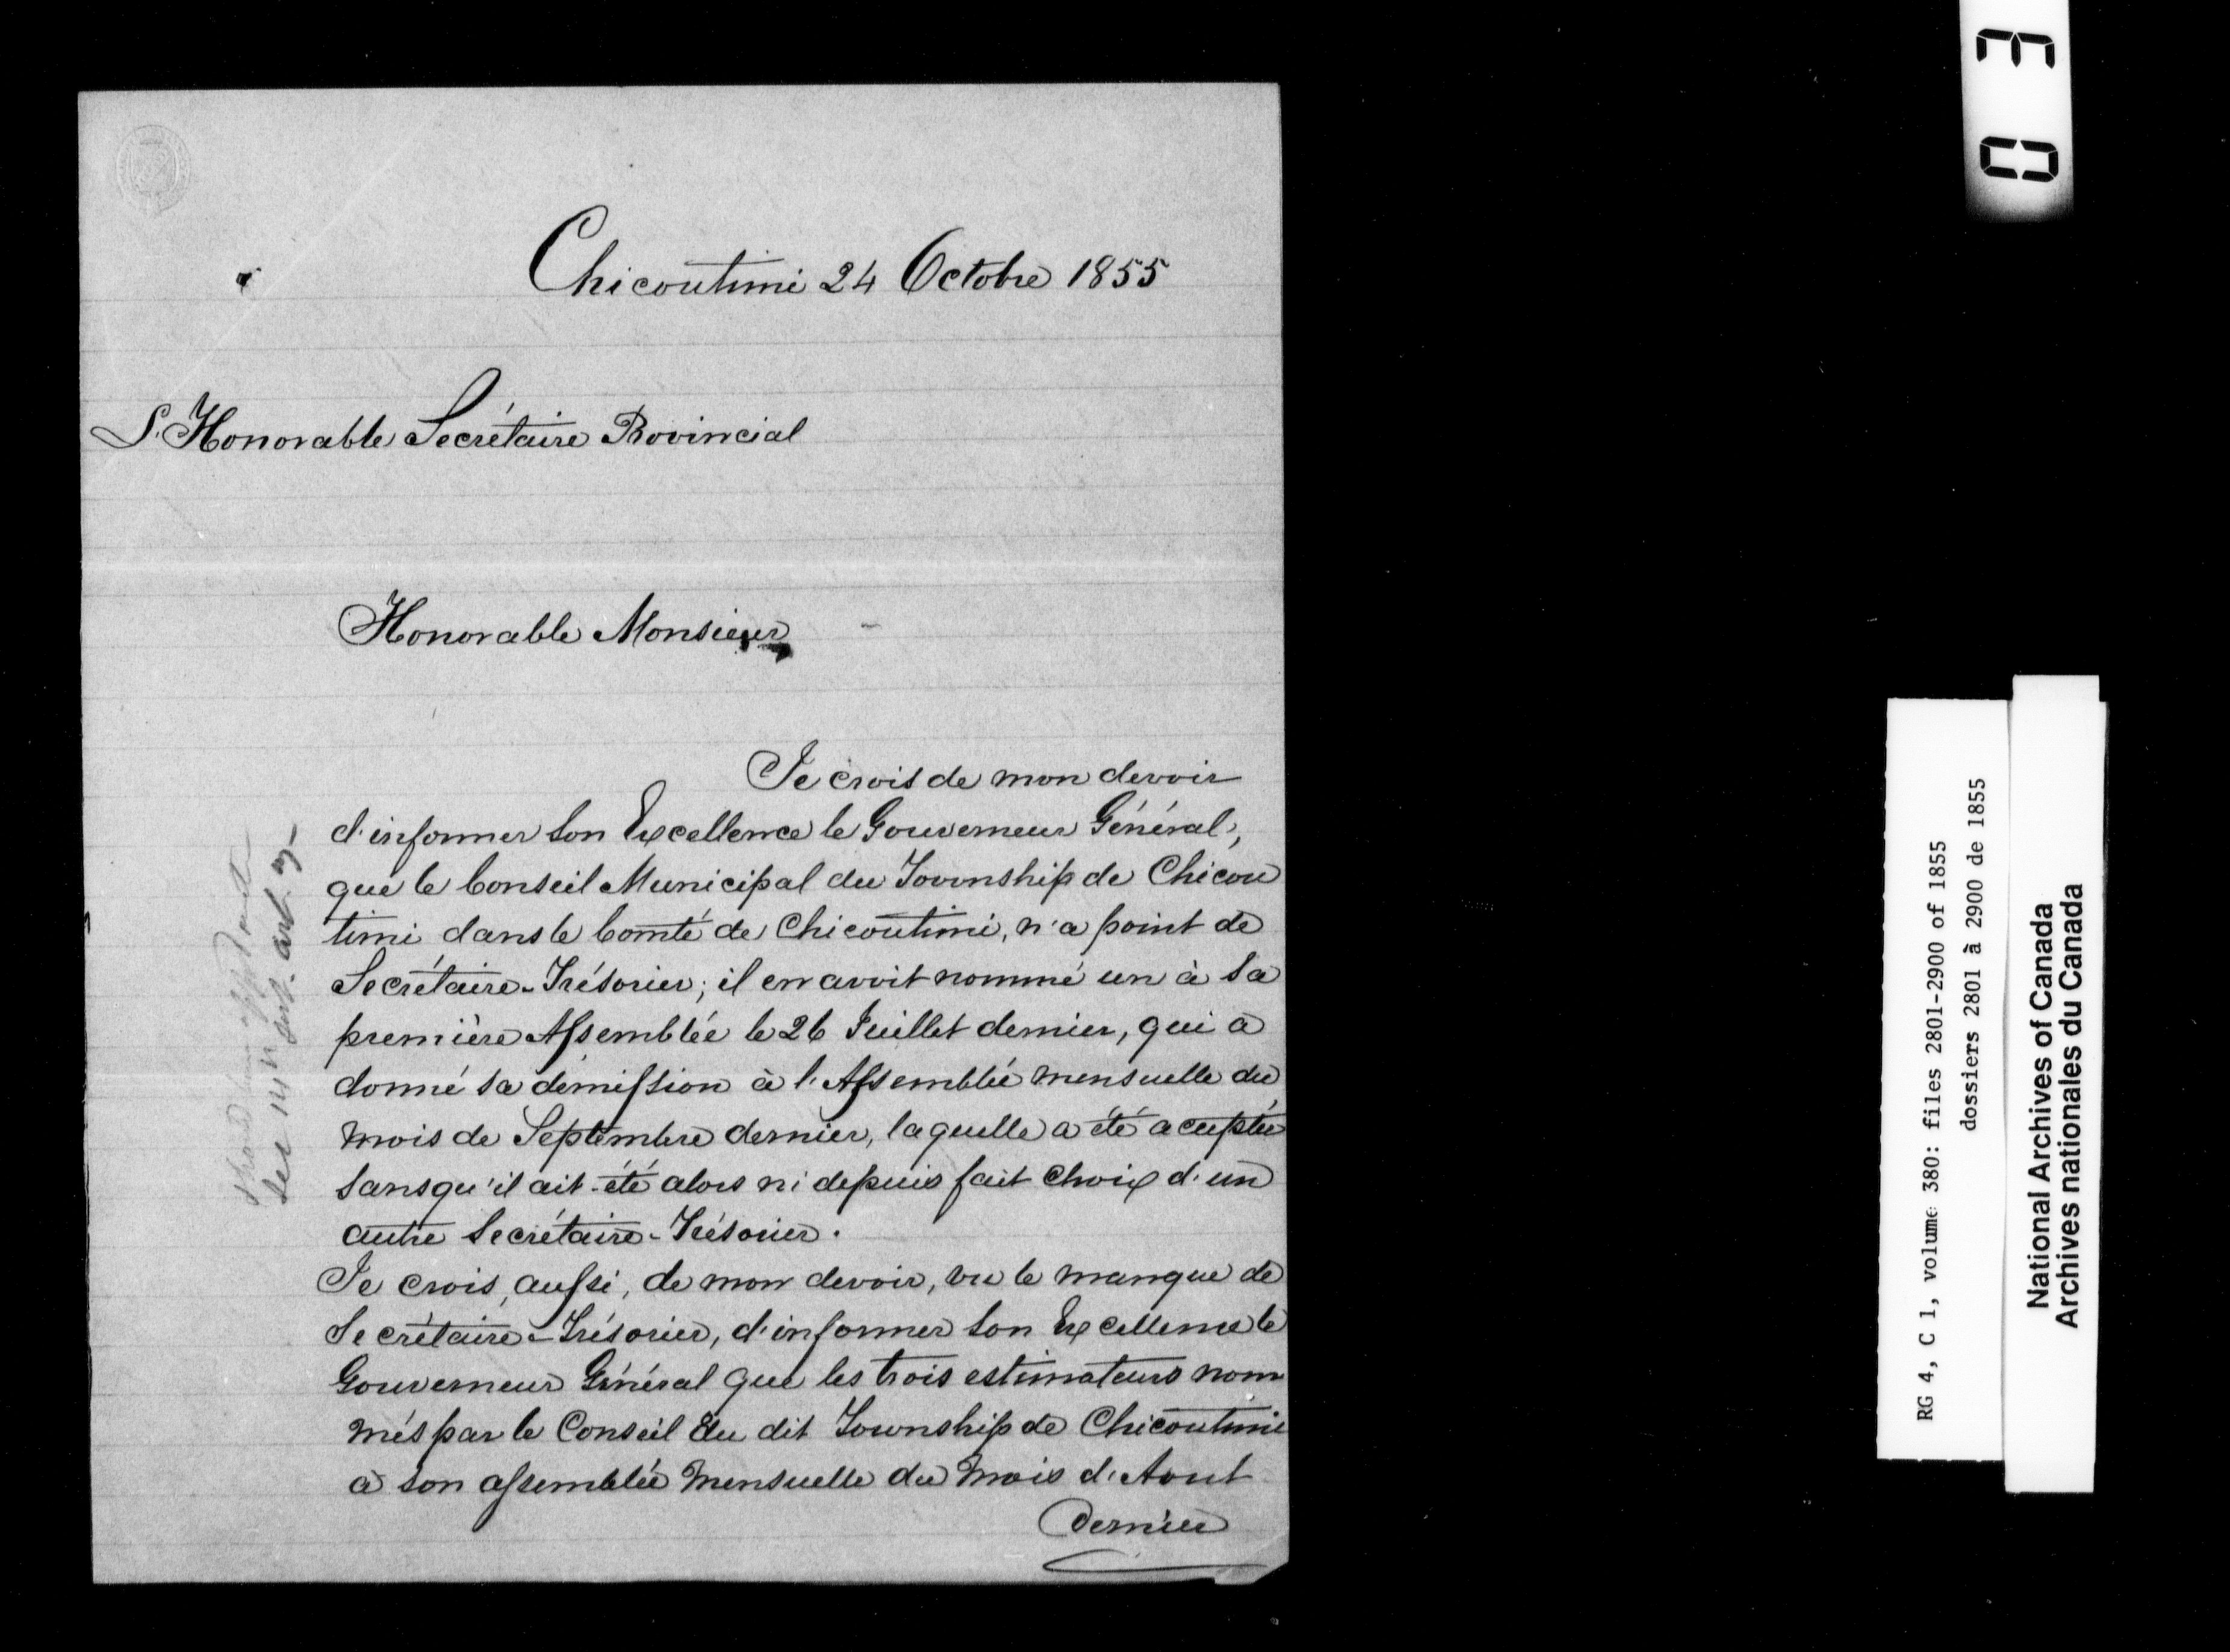 Chicoutimi 24 Octobre 1855
L'Honorable Secrétaire Provincial
Honorable Monsieur
Je crois de mon devoir
d'informer Son Excellence le Gouverneur Général,
que le Conseil Municipal du Township de Chicou
timi dans le Comté de Chicoutimi, n'a point de
Secrétaire-Trésorier; il en avoit nommé un à sa
première Assemblée le 26 Juillet dernier, qui a
donné sa démission à l'Assemblée mensuelle du
mois de Septembre dernier, laquelle a été aceptée
sans qu'il ait été alors ni depuis fait choix d'un
autre Secrétaire-Trésorier.
Je crois, aussi, de mon devoir, vu le manque de
Secrétaire-Trésorier, d'informer Son Excellence le
Gouverneur Général que les trois estimateurs nom
més par le Conseil du dit Township de Chicoutimi
à son assemblée mensuelle du mois d'Aout
dernier
03
RG 4, C 1, volume 380: files 2801-2900 of 1855
dossiers 2801 à 2900 de 1855
National Archives of Canada
Archives nationales du Canada